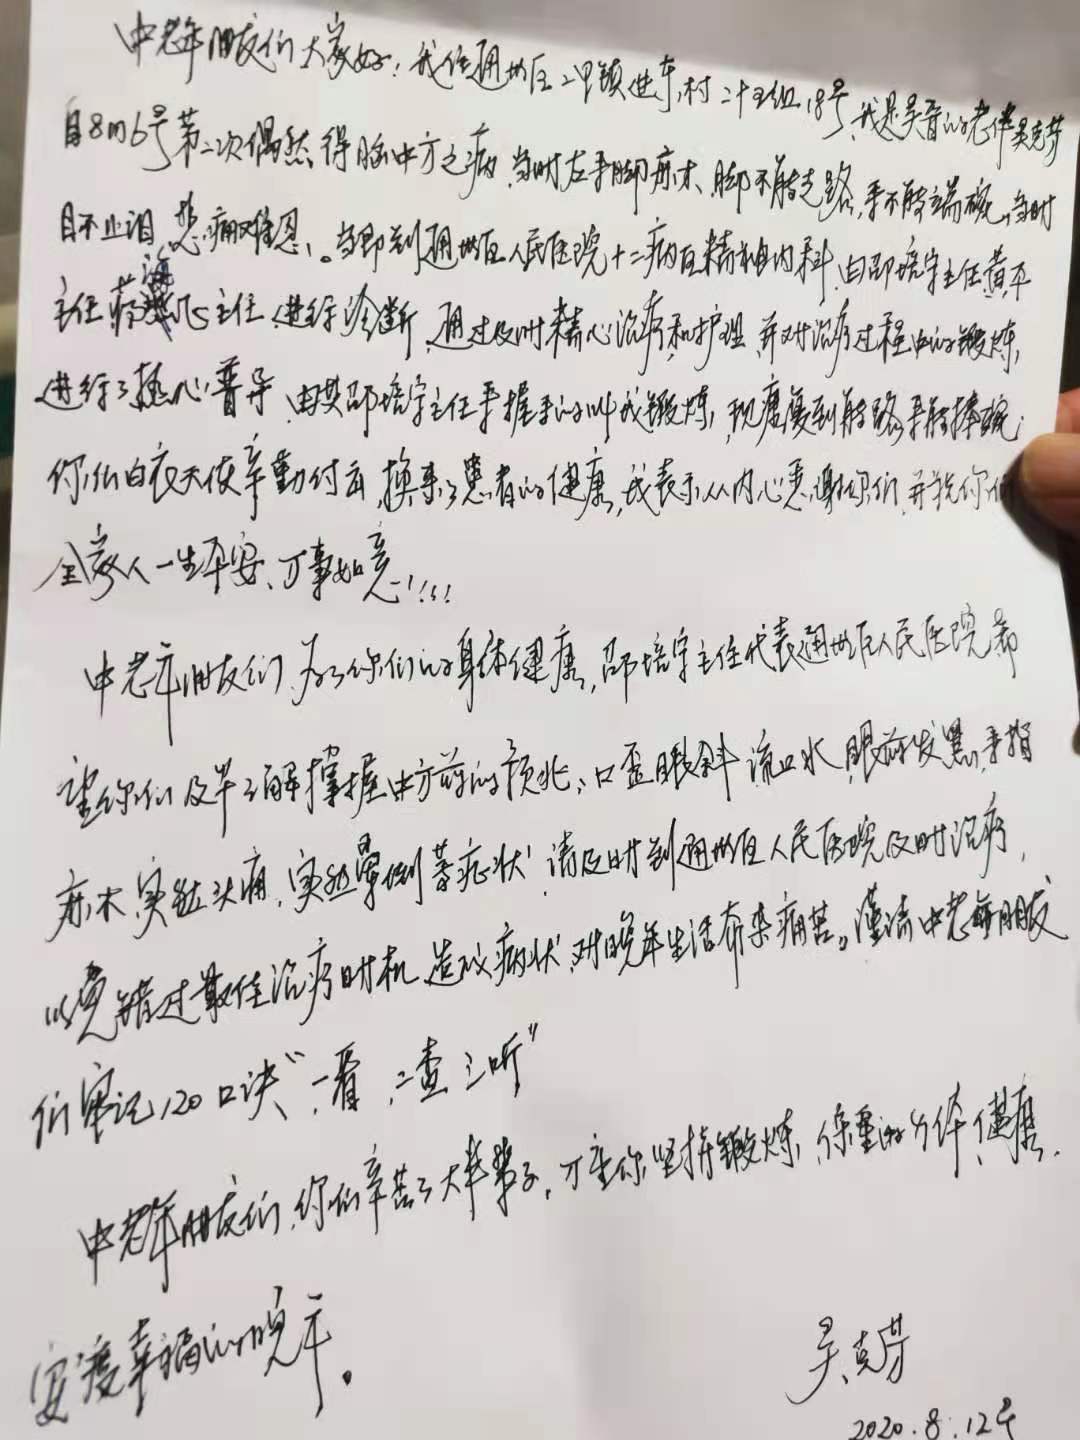 中老年朋友们大家好！我住通州区二甲镇进东村二十五组18号，我是吴晋的老伴吴克芳
自8月6号第二次偶然得脑中方之病，当时左手脚麻木、脚不能走路，手不能端碗，当时
目不止泪，悲痛难忍、。当即到通州区人民医院十二病区精神内科，由邵培宇主任黄平
主任蒋主任，进行诊断，通过及时精心治疗和护理，并对治疗过程中的锻炼，
进行了热心普导，由其邵培宇主任手握手的叫我锻炼，现康复到能路手能捧碗；
你们白衣天使辛勤付出，换来了患者的健康，我表示从内心悥谢你们，并祝你们
全家人一生平安、万事如意！！！！
中老年朋友们，为了你们的身体健康，邵培宇主任代表通州区人民医院希
望你们及早了解掌握中方前的预兆：口歪眼斜，流口水，眼前发黑，手指
麻木，突然头痛，突然晕倒等症状，请及时到通州区人民医院及时治疗，
以免错过最佳治疗时机，造成病状，对晚年生活带来痛苦。谨请中老年朋友
们牢记120口诀“一看，二查，三听”
中老年朋友们，你们辛苦了大半辈子，万望你坚持锻炼，保重的身体、健康，
安度幸福的晚年。
吴克芳
2020.8.12号